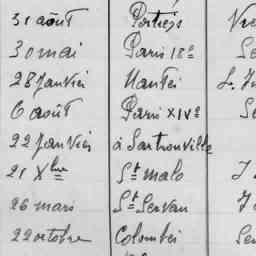 31 août Poitiers
30 mai Paris 18e
28 Janvier Nantes L.
6 août Paris XIVe Se
22 Janvier à Sartrouville
21 Xbre St malo
26 mars St Servan
22 octobre Colombes Se